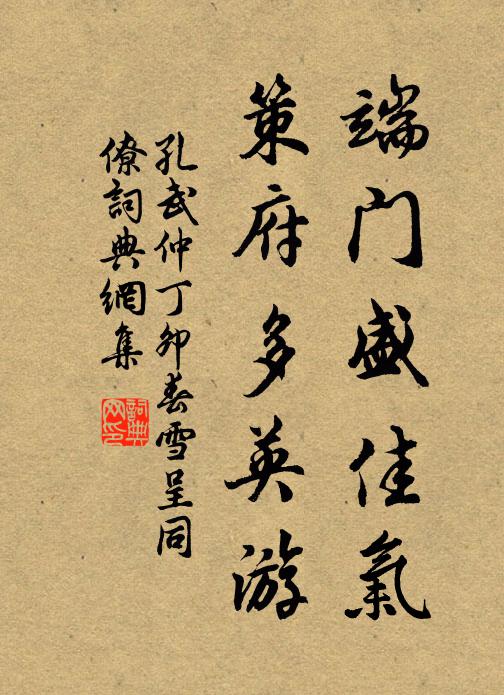 端門盛佳氣
策府多英游
孔武仲丁卯春雪呈同
僚詞典網集
詞典
网印